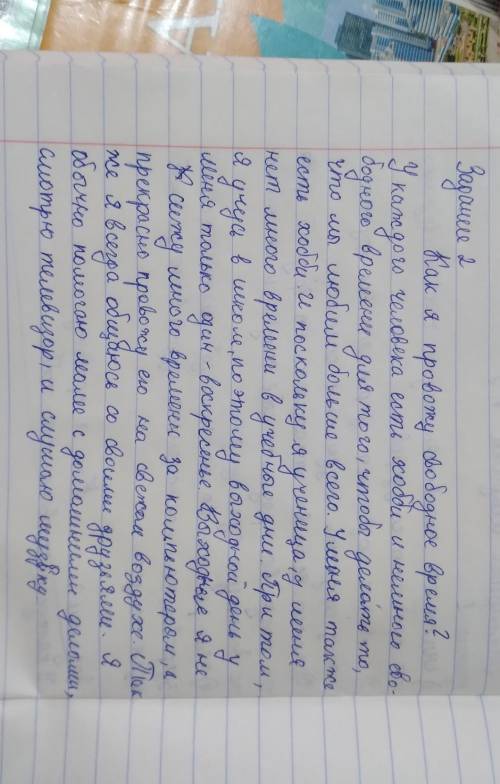 Задание 2
Как я провожу свободное время?
У каждого человека есть хобби и немного сво-
бодного времени для того, чтобы делать то,
что мы любим больше всего. У меня также
есть хобби. И поскольку я ученица, у меня
нет много времени в учебные дни. При том,
я учусь в школе, поэтому выходной день у
меня только один - воскресенье. В выходные я не
сижу много времени за компьютером, а
прекрасно провожу его на свежом воздухе. Так
же я всегда общаюсь со своими друзьями. Я
обычно помогаю маме с домашними делами,
смотрю телевизор, и слушаю музыку